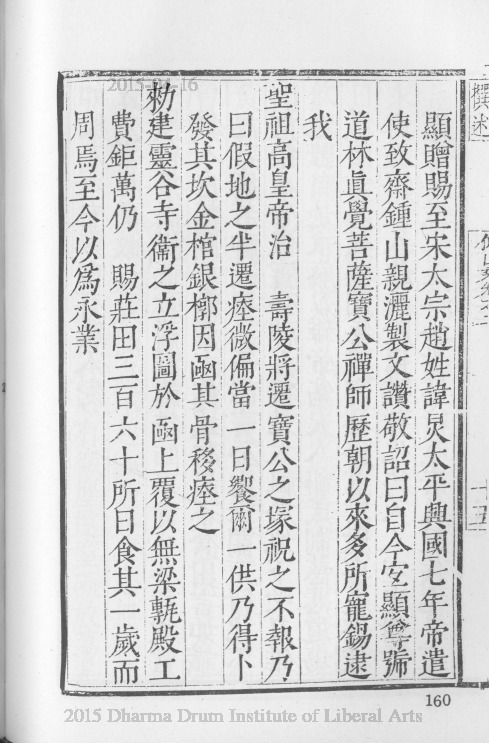 顯贈賜至宋太宗趙姓諱炅太平興國七年帝遣
使致齋鍾山親灑製文讚敬詔曰自今宜顯尊號
道林眞覺菩薩寶公禪師歷朝以來多所寵錫逮
我
聖祖高皇帝治　壽陵將遷寶公之塚祝之不報乃
曰假地之半遷瘞微偏當一日饗爾一供乃得卜
發其坎金棺銀槨因函其骨移瘞之
勑建靈谷寺衞之立浮圖於函上覆以無梁甎殿工
費鉅萬仍　賜莊田三百六十所日食其一歲而
周焉至今以爲永業
160
2015-04-16
2015 Dharma Drum Institute of Liberal Arts